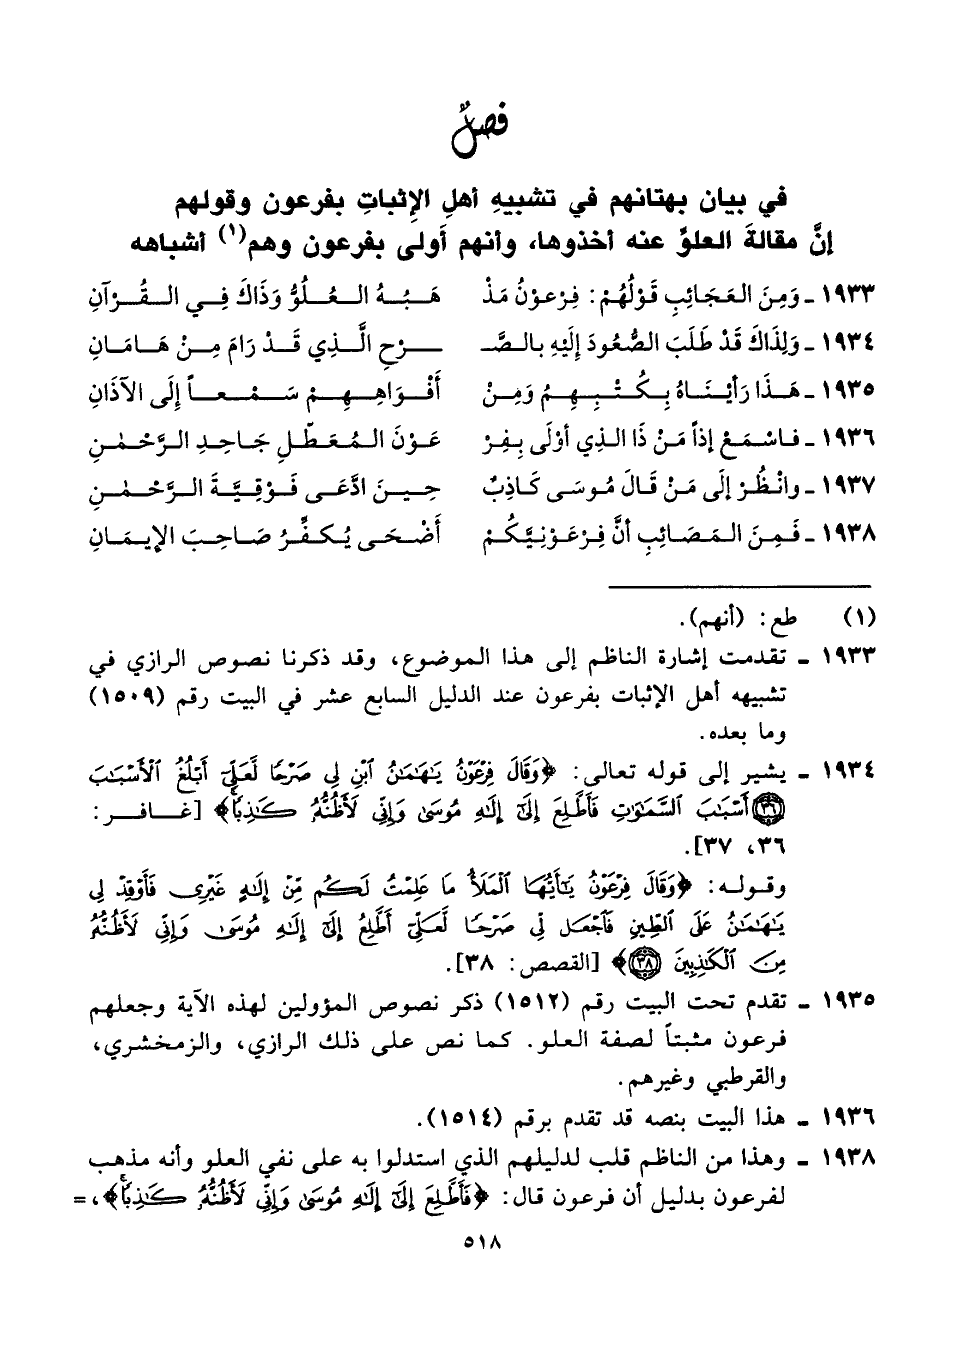 فصلٌ
في بيان بهتانهم في تشبيهِ أهلِ الإثباتِ بفرعون وقولهم
إنَّ مقالةَ العلوِّ عنه أخذوها، وأنهم أولى بفرعون وهم(١) أشباهه
١٩٣٣ ـ وَمِنَ العَجَائِبِ قَوْلُهُمْ: فِرعَوْنُ مَذْ هَبُهُ العُلُوُّ وَذَاكَ فِي القُرْآنِ
١٩٣٤ ـ وَلِذَاكَ قَدْ طَلَبَ الصُّعُودَ إِلَيْهِ بالصَّـ ـرْحِ الَّذِي قَدْ رَامَ مِنْ هَامَانِ
١٩٣٥ ـ هَذَا رَأَيْنَاهُ بِكُتْبِهِمُ وَمِنْ أَفْوَاهِهِمْ سَمْعاً إِلَى الآذَانِ
١٩٣٦ ـ فاسْمَعْ إذاً مَنْ ذَا الذِي أَوْلَى بِفِرْ عَوْنَ المُعَطِّلِ جَاحِدِ الرَّحْمٰنِ
١٩٣٧ ـ وانْظُرْ إلَى مَنْ قَالَ مُوسَى كَاذِبٌ حِينَ ادَّعَى فَوْقِيَّةَ الرَّحْمٰنِ
١٩٣٨ ـ فَمِنَ المَصَائِبِ أنَّ فِرعَوْنِيَّكُمْ أَضْحَى يُكَفِّرُ صَاحِبَ الإيمَانِ
(١) طع: (أنهم).
١٩٣٣ ـ تقدمت إشارة الناظم إلى هذا الموضوع، وقد ذكرنا نصوص الرازي في
تشبيهه أهل الإثبات بفرعون عند الدليل السابع عشر في البيت رقم (١٥٠٩)
وما بعده.
١٩٣٤ ـ يشير إلى قوله تعالى: ﴿وَقَالَ فِرْعَوْنُ يَٰهَٰمَٰنُ ٱبْنِ لِي صَرْحًا لَّعَلِّيٓ أَبْلُغُ ٱلْأَسْبَٰبَ
٣٦ أَسْبَٰبَ ٱلسَّمَٰوَٰتِ فَأَطَّلِعَ إِلَىٰٓ إِلَٰهِ مُوسَىٰ وَإِنِّي لَأَظُنُّهُۥ كَٰذِبًاۚ﴾ [غافر:
٣٦، ٣٧].
وقوله: ﴿وَقَالَ فِرْعَوْنُ يَٰٓأَيُّهَا ٱلْمَلَأُ مَا عَلِمْتُ لَكُم مِّنْ إِلَٰهٍ غَيْرِي فَأَوْقِدْ لِي
يَٰهَٰمَٰنُ عَلَى ٱلطِّينِ فَٱجْعَل لِّي صَرْحًا لَّعَلِّيٓ أَطَّلِعُ إِلَىٰٓ إِلَٰهِ مُوسَىٰ وَإِنِّي لَأَظُنُّهُۥ
مِنَ ٱلْكَٰذِبِينَ ٣٨﴾ [القصص: ٣٨].
١٩٣٥ ـ تقدم تحت البيت رقم (١٥١٢) ذكر نصوص المؤولين لهذه الآية وجعلهم
فرعون مثبتاً لصفة العلو. كما نص على ذلك الرازي، والزمخشري،
والقرطبي وغيرهم.
١٩٣٦ ـ هذا البيت بنصه قد تقدم برقم (١٥١٤).
١٩٣٨ ـ وهذا من الناظم قلب لدليلهم الذي استدلوا به على نفي العلو وأنه مذهب
لفرعون بدليل أن فرعون قال: ﴿فَأَطَّلِعَ إِلَىٰٓ إِلَٰهِ مُوسَىٰ وَإِنِّي لَأَظُنُّهُۥ كَٰذِبًاۚ﴾، =
٥١٨